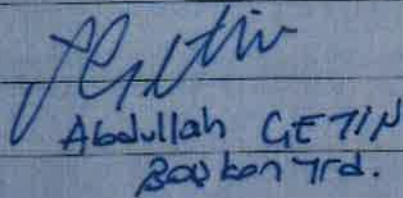 Abdullah ÇETİN
Başkan Yrd.